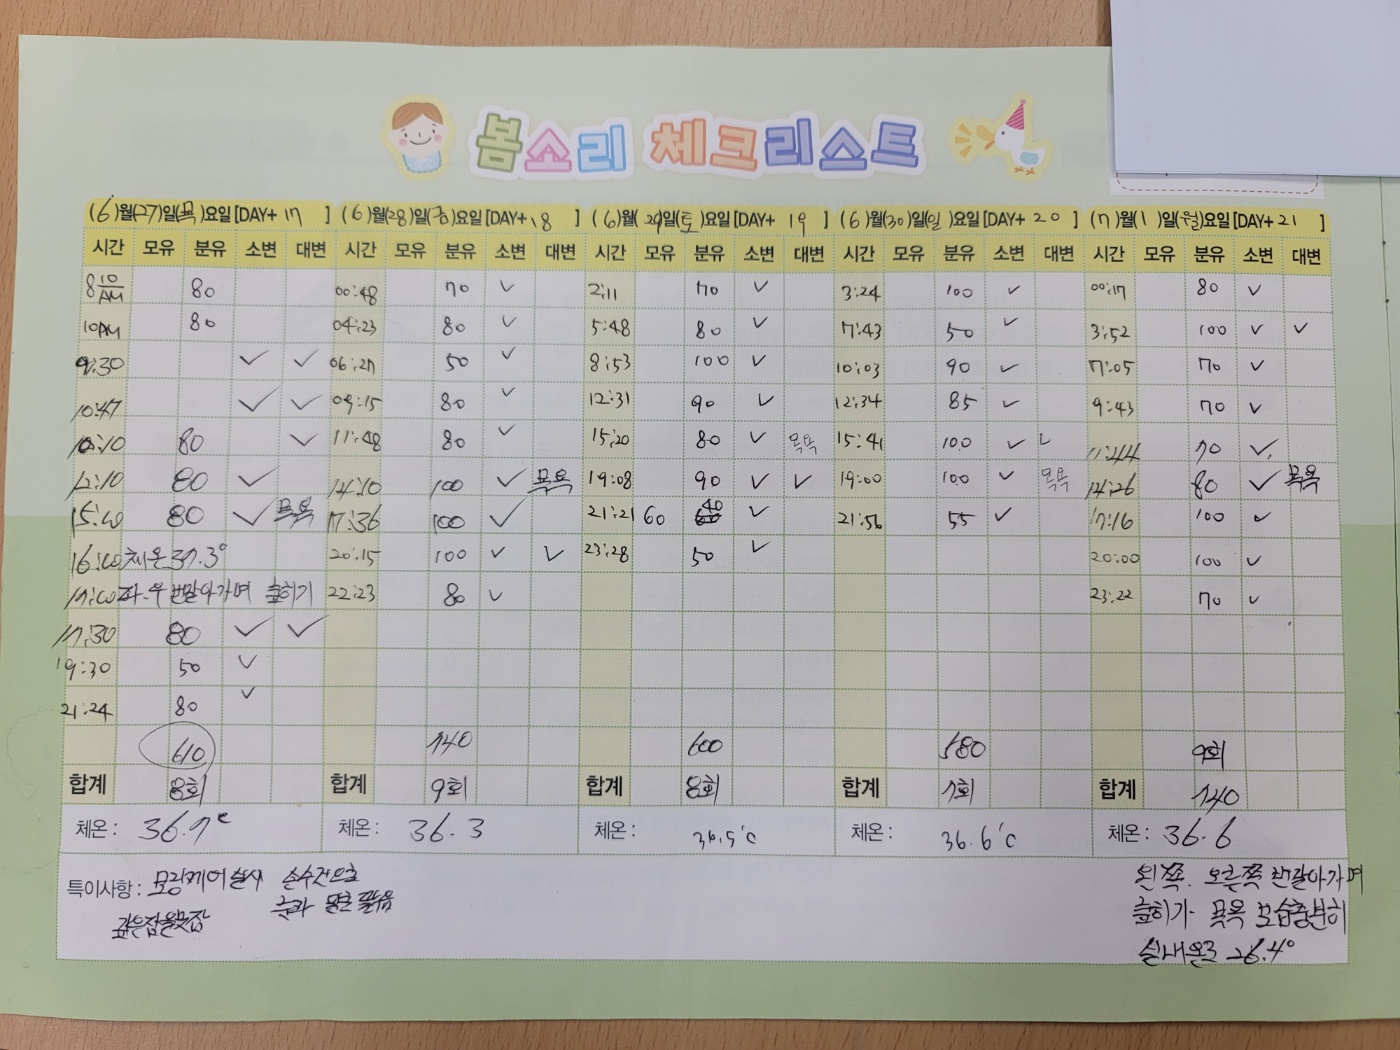 봄소리 체크리스트
(6)월(27)일(목)요일 [DAY+ 17 ] (6)월(28)일(금)요일 [DAY+ 18 ] (6)월(29)일(토)요일 [DAY+ 19 ] (6)월(30)일(일)요일 [DAY+ 20 ] (7)월(1)일(월)요일 [DAY+ 21 ]
시간 모유 분유 소변 대변 시간 모유 분유 소변 대변 시간 모유 분유 소변 대변 시간 모유 분유 소변 대변 시간 모유 분유 소변 대변
8 10/AM 80 00:48 70 ✓ 2:11 70 ✓ 3:24 100 ✓ 00:17 80 ✓
10AM 80 04:23 80 ✓ 5:48 80 ✓ 7:43 50 ✓ 3:52 100 ✓ ✓
9:30 ✓ ✓ 06:27 50 ✓ 8:53 100 ✓ 10:03 90 ✓ 7:05 70 ✓
10:47 ✓ ✓ 09:15 80 ✓ 12:31 90 ✓ 12:34 85 ✓ 9:43 70 ✓
10:10 80 ✓ 11:48 80 ✓ 15:20 80 ✓ 목욕 15:41 100 ✓ ✓ 11:44 70 ✓
12:10 80 ✓ 14:10 100 ✓ 목욕 19:08 90 ✓ ✓ 19:00 100 ✓ 목욕 14:26 80 ✓ 목욕
15:40 80 ✓ 목욕 17:36 100 ✓ 21:21 60 40 ✓ 21:56 55 ✓ 17:16 100 ✓
16:40 체온 37.3° 20:15 100 ✓ ✓ 23:28 50 ✓ 20:00 100 ✓
17:00 좌.우 번갈아가며 눕히기 22:23 80 ✓ 23:22 70 ✓
17:30 80 ✓ ✓
19:30 50 ✓
21:24 80 ✓
610 740 600 580 9회
합계 8회 합계 9회 합계 8회 합계 7회 합계 740
체온 : 36.7℃ 체온 : 36.3 체온 : 36.5℃ 체온 : 36.6℃ 체온 : 36.6
특이사항 : 모빙제어실시 손수건으로 왼쪽. 오른쪽 번갈아가며
깊은잠을못잠 눕히기- 목욕 보습충분히
실내온도 26.4°